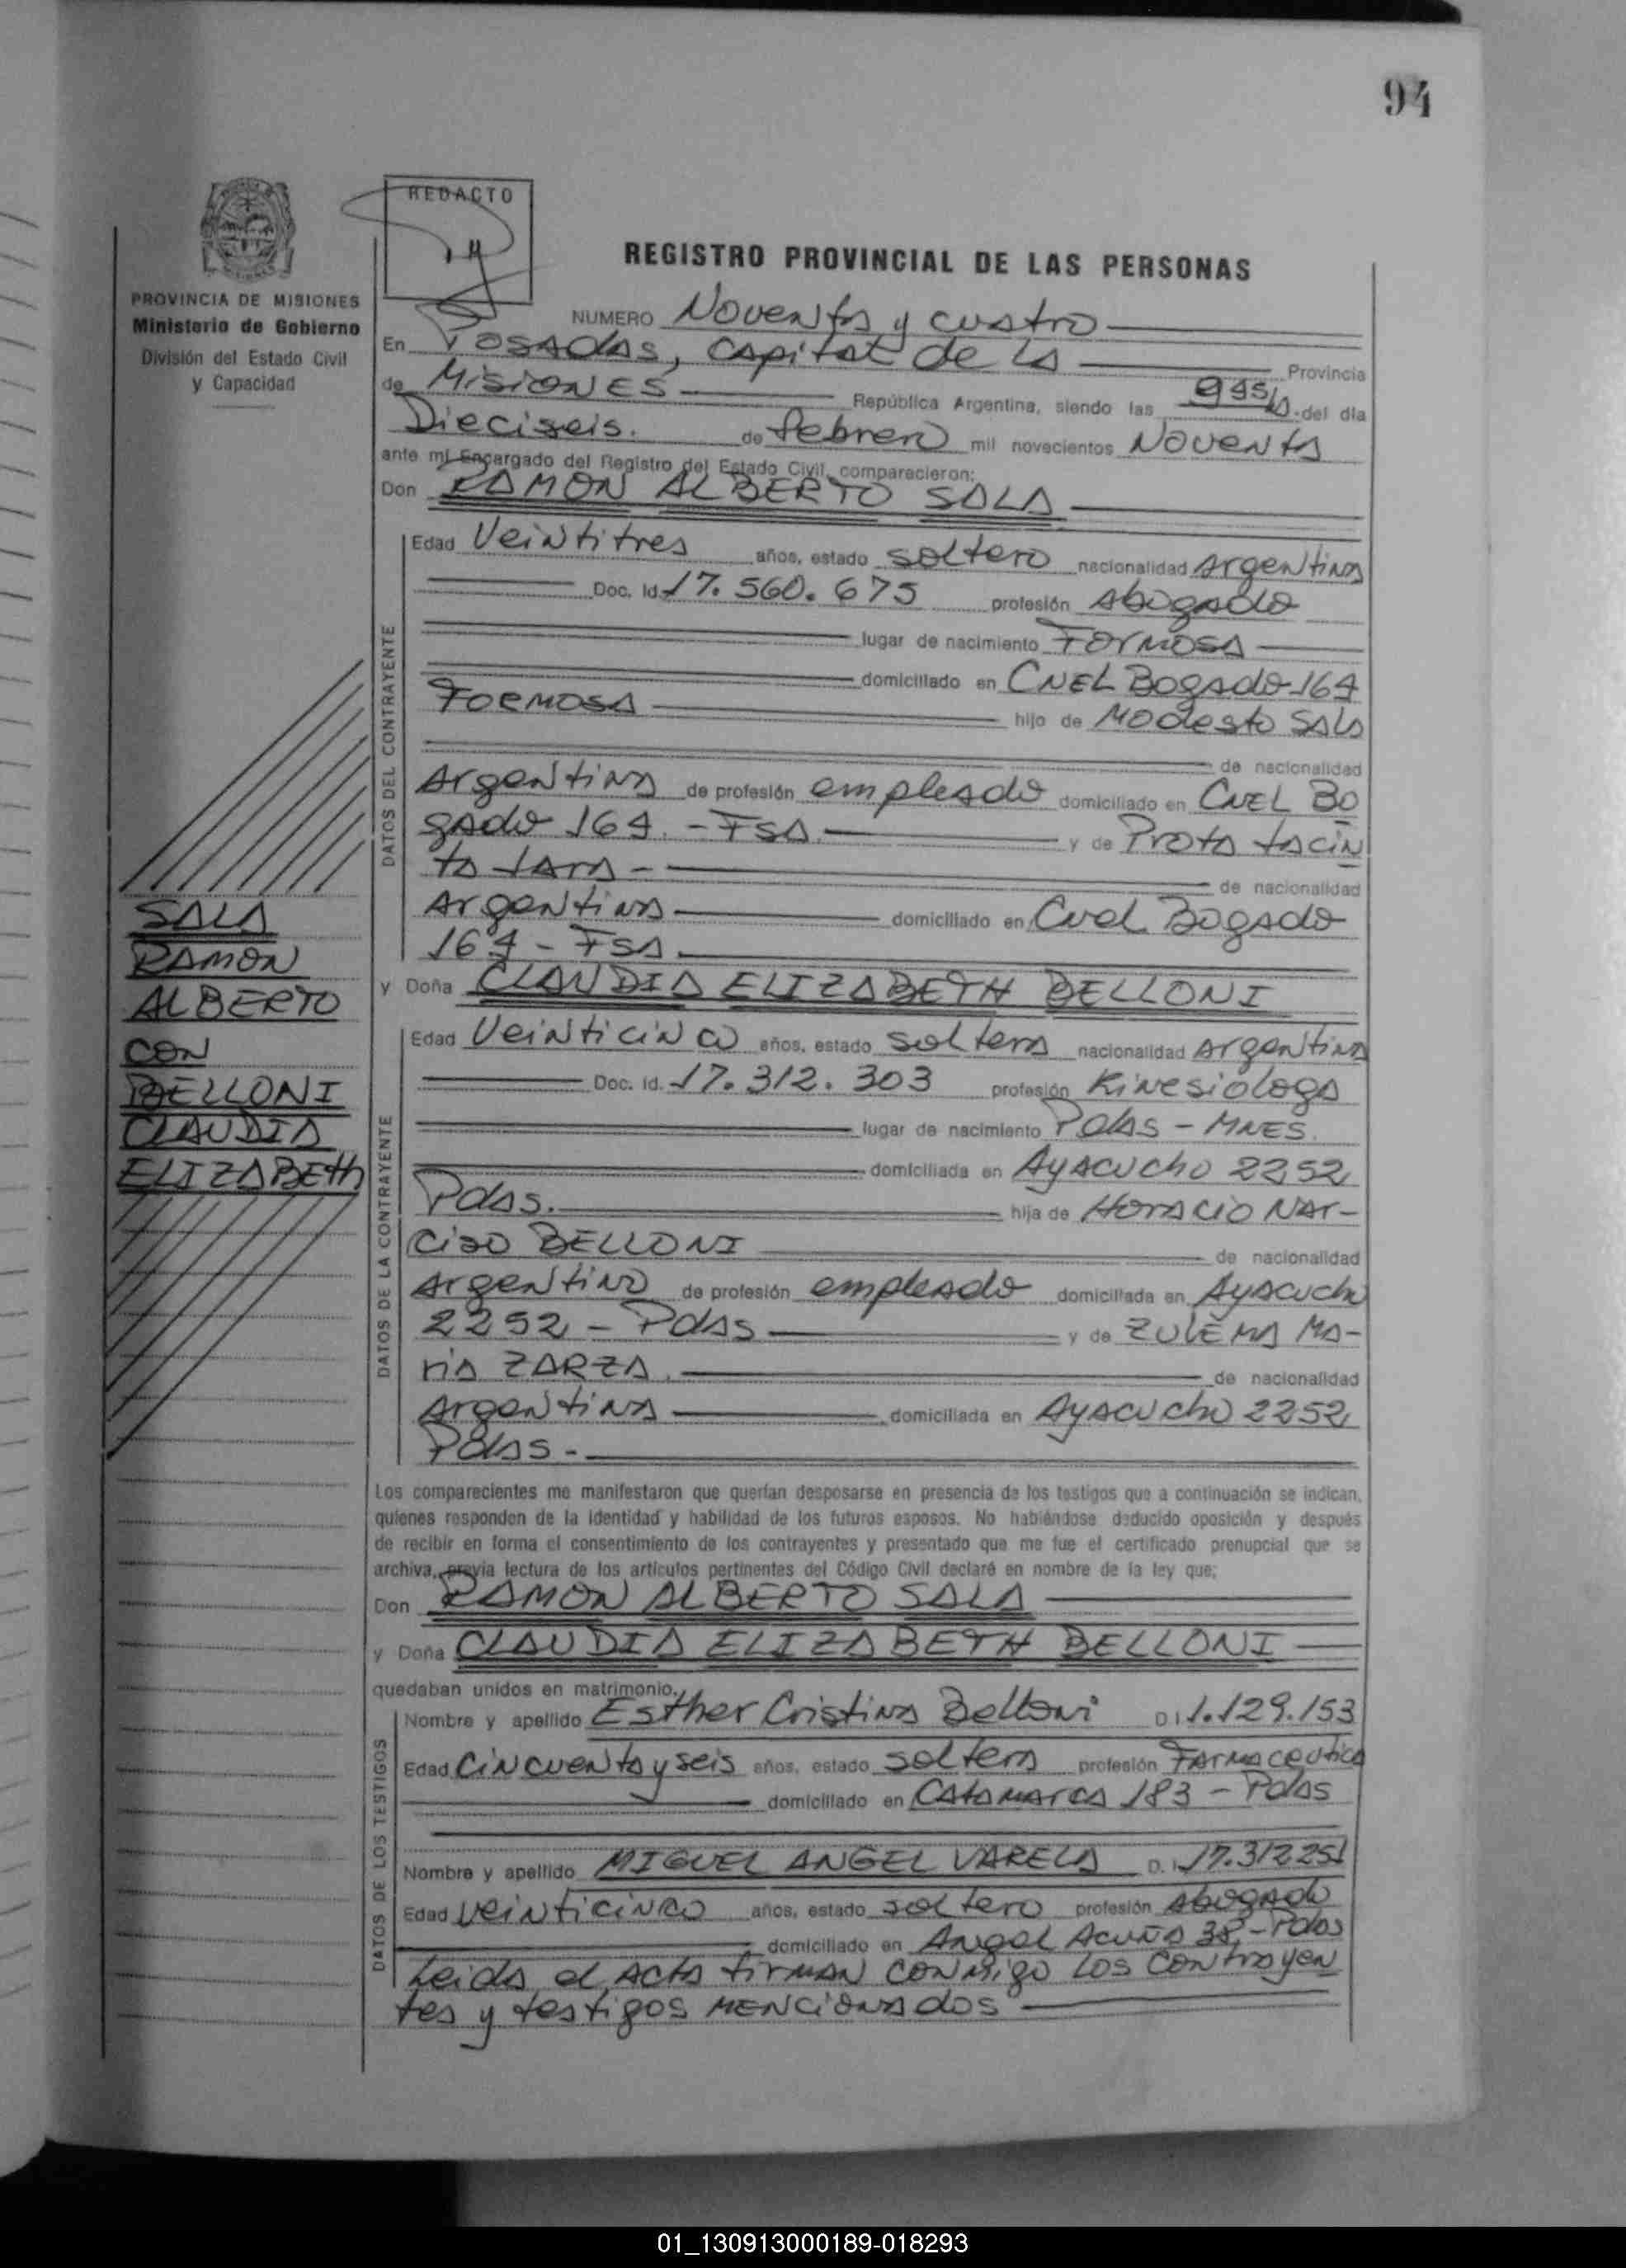 94
REDACTO
REGISTRO PROVINCIAL DE LAS PERSONAS
PROVINCIA DE MISIONES
Ministerio de Gobierno
División del Estado Civil
y Capacidad
NUMERO Noventa y cuatro
En Posadas, capital de la Provincia
de Misiones República Argentina, siendo las 9 45 h. del día
Dieciseis. de febrero mil novecientos Noventa
ante mí Encargado del Registro del Estado Civil, comparecieron:
Don RAMON ALBERTO SALA
DATOS DEL CONTRAYENTE
Edad Veintitres años, estado soltero nacionalidad Argentina
Doc. Id. 17.560.675 profesión Abogado
lugar de nacimiento Formosa
domiciliado en CNEL Bogado 164
Formosa hijo de Modesto Sala
de nacionalidad
Argentina de profesión empleado domiciliado en CNEL Bo
gado 164.-FSA. y de Prota Jacin
ta Jara - de nacionalidad
Argentina domiciliado en Cnel Bogado
164-FSA.
SALA
RAMON
ALBERTO
CON
BELLONI
CLAUDIA
ELIZABETh
y Doña CLAUDIA ELIZABETH BELLONI
DATOS DE LA CONTRAYENTE
Edad Veinticinco años, estado soltera nacionalidad Argentina
Doc. Id. 17.312.303 profesión Kinesióloga
lugar de nacimiento Pdas - MNES.
domiciliada en Ayacucho 2252
Pdas. hija de Horacio Nar-
ciso BELLONI de nacionalidad
Argentino de profesión empleado domiciliada en Ayacucho
2252 - Pdas y de ZULEMA MA-
ria ZARZA. de nacionalidad
Argentina domiciliada en Ayacucho 2252
Pdas -
Los comparecientes me manifestaron que querían desposarse en presencia de los testigos que a continuación se indican,
quienes responden de la identidad y habilidad de los futuros esposos. No habiéndose deducido oposición y después
de recibir en forma el consentimiento de los contrayentes y presentado que me fue el certificado prenupcial que se
archiva, previa lectura de los artículos pertinentes del Código Civil declaré en nombre de la ley que:
Don RAMON ALBERTO SALA
y Doña CLAUDIA ELIZABETH BELLONI
quedaban unidos en matrimonio.
DATOS DE LOS TESTIGOS
Nombre y apellido Esther Cristina Belloni D.I. 1.129.153
Edad Cincuenta y seis años, estado soltera profesión Farmaceutica
domiciliado en Catamarca 183 - Pdas
Nombre y apellido MIGUEL ANGEL VARELA D.I. 17.312.251
Edad veinticinco años, estado soltero profesión Abogado
domiciliado en Angel Acuña 38,-Pdas
Leida el Acta firman conmigo los contrayen
tes y testigos mencionados
01_130913000189-018293